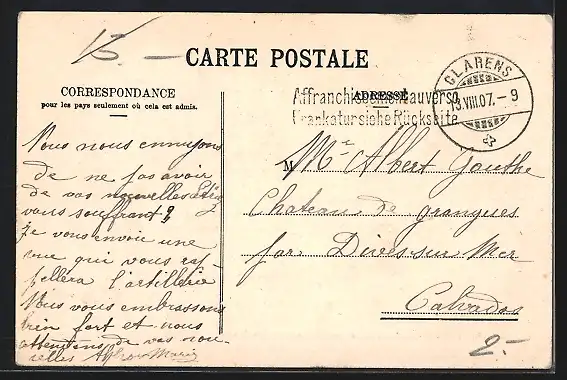 15
CARTE POSTALE
CORRESPONDANCE
pour les pays seulement où cela est admis.
ADRESSE
Affranchissement au verso
Frankatur siehe Rückseite
CLARENS
13.VIII.07.-9
Vous nous ennuyons
de ne pas avoir
de vos nouvelles
vous souffrant?
Je vous envoie une
vue qui vous rap-
pellera l'artillerie
Nous vous embrassons
bien fort et nous
attendons de vos nou-
velles Marie
M
Mr Albert Gouthe
Chateau de grangues
par Dives sur Mer
Calvados
2.-